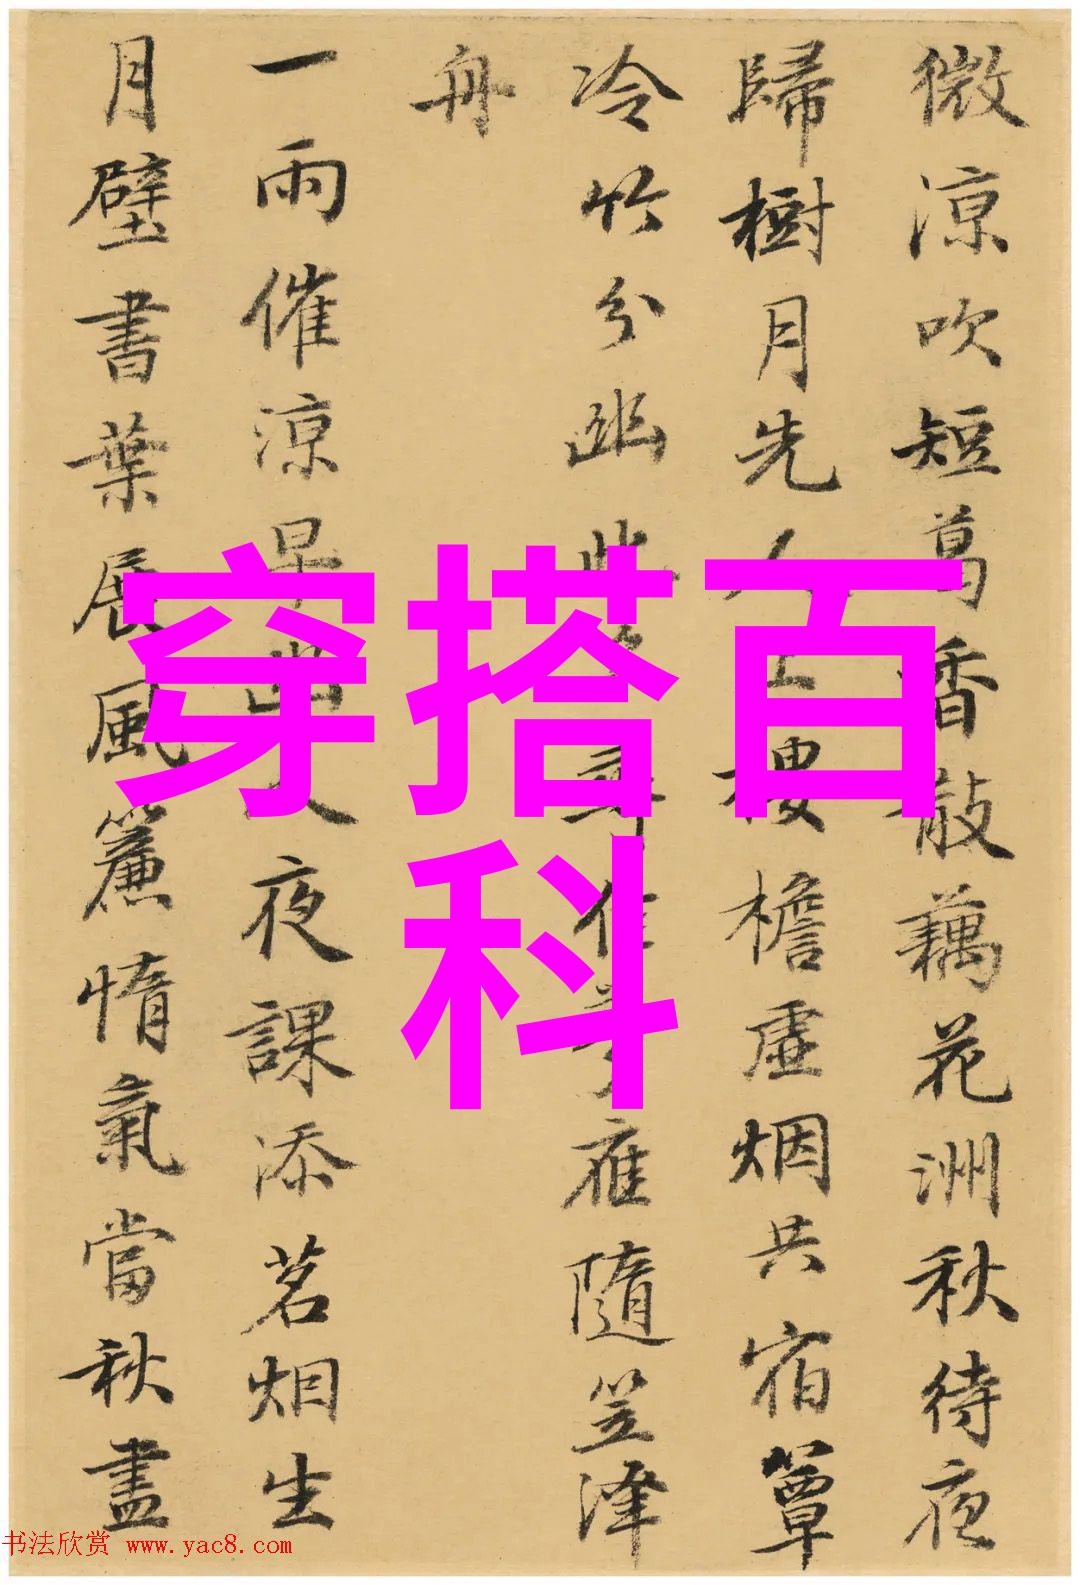 微涼吹短葛香散藕花洲秋待夜
歸樹月先人上樓檐虛烟共宿簟
冷竹分幽
雇隨笠澤
舟
一雨催涼早
夜課添茗烟生
月壁書葉展風簾惰氣當秋盡
穿搭百
科
书法欣赏 www.yac8.com